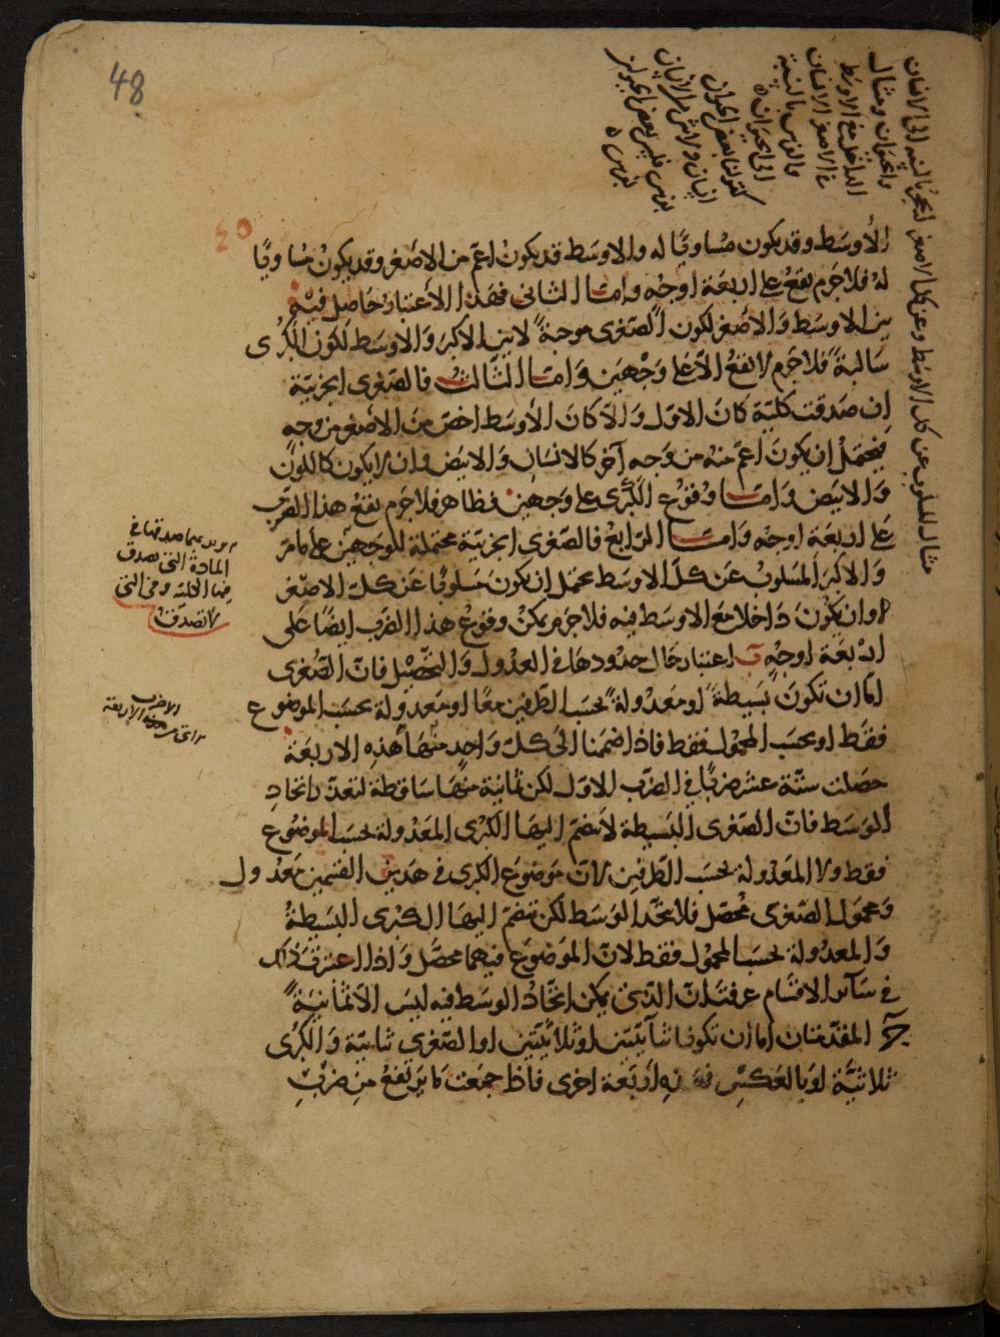 48
مثال المسلوب عن كل الاوسط وعن كل الاصغر الحجر بالنسبة الى الانسان
والحيوان ومثال
الداخل مع الاوسط
في الاصغر الانسان
والفرس بالنسبة
الى الحيوان ه
كقولنا بعض الحيوان
انسان ولا شي من الانسان
بفرس فليس بعض الحيوان
بفرس ه
الأوسَط وقد يكون مسَاويًا له والاوسَط قد يكون اعمّ من الاصغر وقد يكون مسَاويًا
لهُ فلا جرم يقع على اربعَة اوجُه وامّا الثانى فهَذا الأعتبار حَاصل فيه
بين الاوسَط وَالاصغر لكون الصّغرى موجبةً لا بين الاكبر وَالاوسَط لكون الكبرى
سَالبةً فلا جرم لا يقع الاّ على وَجْهَين وَامّا الثالث فالصغرى الجزئيّة
ان صَدقت كليّة كان الاوّل وَالاّ كان الأوسَط اخصّ من الاصغر من وجه
فيحتمل ان يكون اعمّ منه من وَجه آخر كالانسَان وَالابيَض وان لا يكون كاللون
وَالابيَض وَامّا وقوع الكبرى على وَجهين فظاهر فلا جرَم يقع هذا الضّرب
عَلى اربعَة اوجه وَامّا الرابع فالصّغرى الجزئيّة محتملة للوجهَين على ما مرّ
وَالاكبر المسَلوب عَن كلّ الاوسَط يحتمل ان يكون مَسلوبًا عَن كلّ الاصغر
او ان يكون دَاخلا مع الاوسَط فيه فلا جرم يمكن وقوع هذا الضّرب ايضًا عَلى
اربعَة اوجُه ب اعتبار حَال حدودهَا فى العدُول وَالتحصْيل فانّ الصّغرى
امّا ان تكون بسَيطة او معَدولة بحسَب الطرفين معًا او معَدولة بحسَب الموضوع
فقط او بحسَب المحمُول فقط فاذا ضممنا الى كلّ وَاحدٍ منهَا هذه الاربعَة
حصَلت ستّة عشر ضربًا فى الضرب الاوّل لكن ثمانية منها سَاقطة لتعذّر اتحادِ
الوَسَط فانّ الصّغرى البَسيطة لا ينضمّ اليهَا الكبْرى المعَدولة بحسَب الموضوع
فقط ولا المعَدولة بحسَب الطرفين لانّ موَضوعَ الكبرى فى هَذين القسمين معَدول
وَمحمول الصّغرى محُصّل فلا يتحَّد الوَسَط لكن تنضمّ اليهَا الكبْرى البَسيطةُ
وَالمعدُولة بحسَب المحمُول فقط لانّ الموَضوع فيهما محصّل وَاذا اعتبرت ذلك
فى سَائر الاقسَام عرفت انّ الذّى يمكن اتحادُ الوسَط فيه ليسَ الاّ ثمانيةً
ج المقدّمتان امّا ان تكونا ثنائيّتين او ثلاثيّتين او الصّغرى ثنائية وَالكبرى
ثلاثيّة او بالعَكسِ فهَذه اربعَة اخرى فاذا جمعَت مَا يرتفعُ من ضربِ
المادة التى تصدق
فيها الكلية وفى التى
لا تصدق